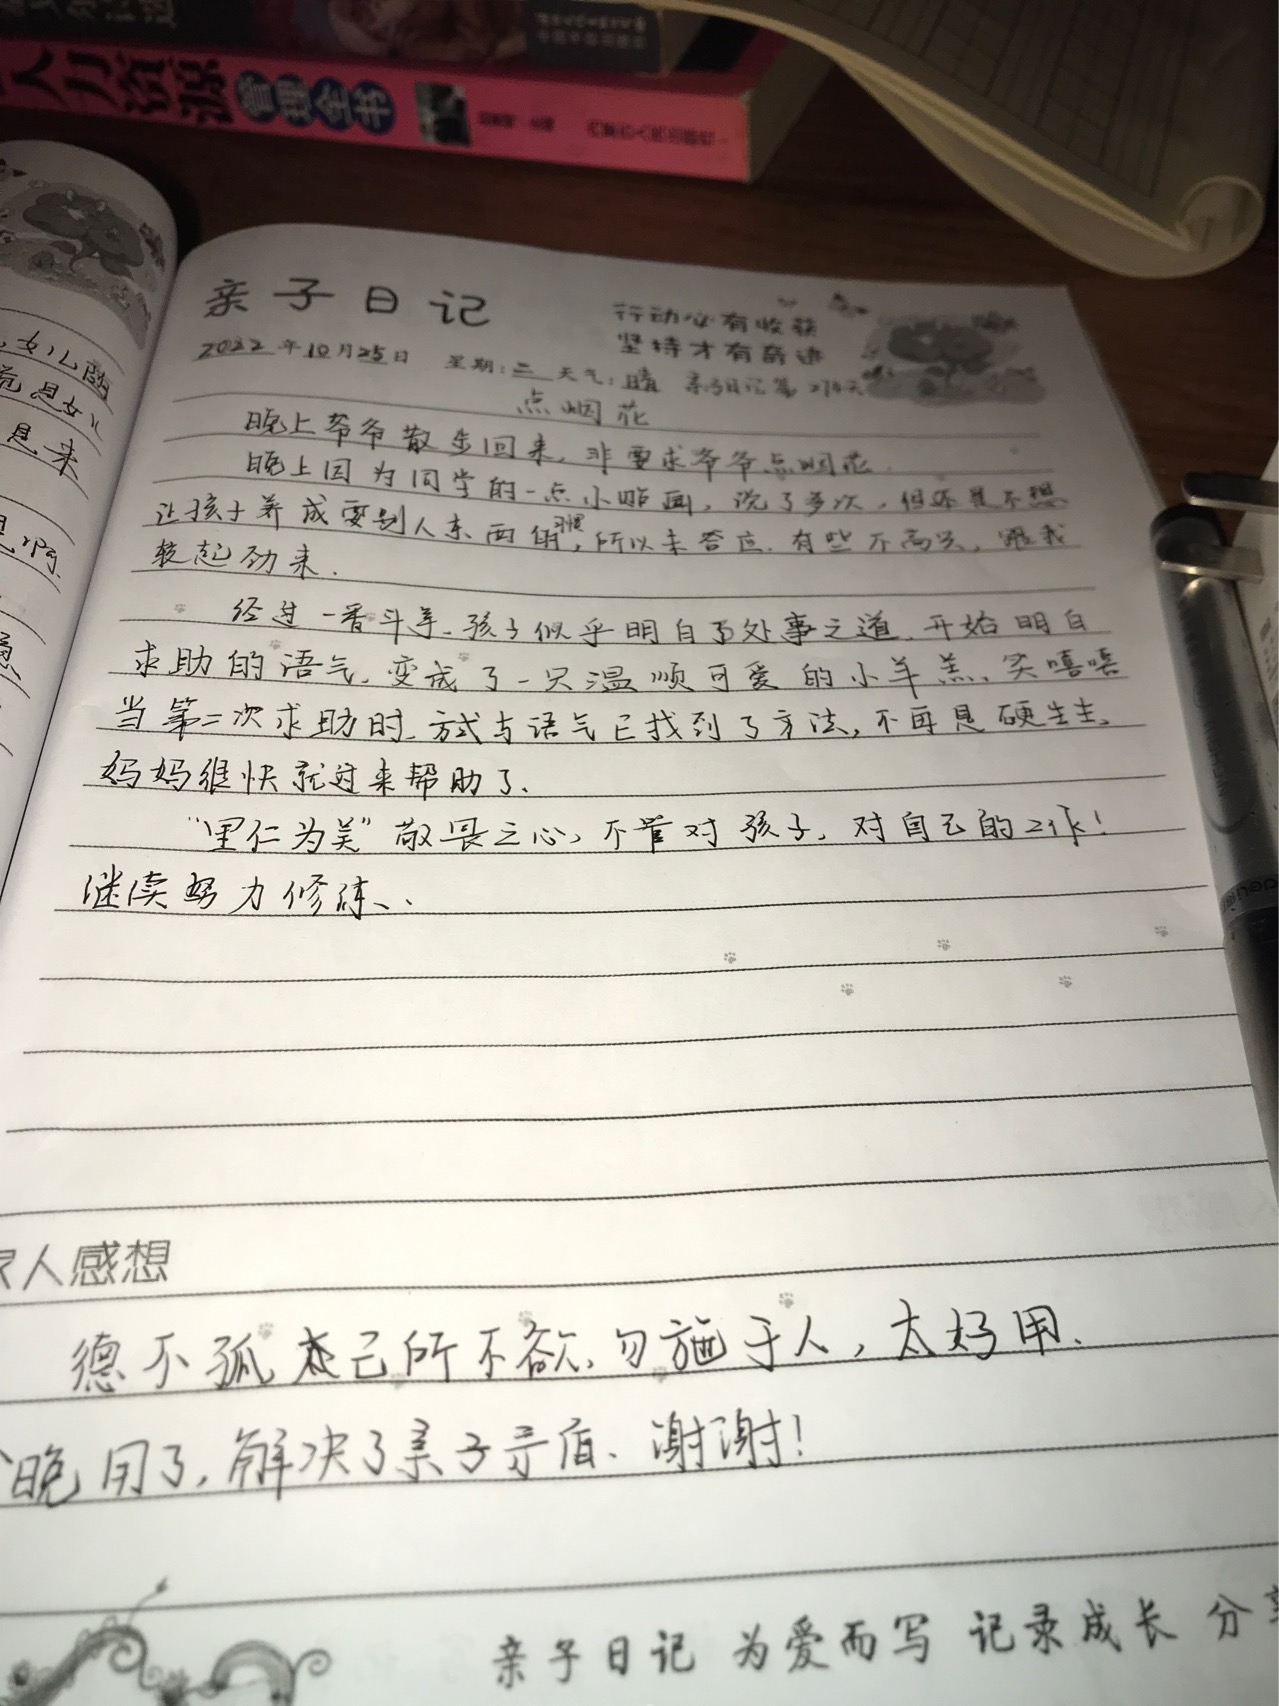 人力资源 管理全书
内蒙古人民出版社
亲子日记
行动必有收获
坚持才有奇迹
2022年10月25日 星期:二 天气:晴 亲子日记第 天
点烟花
晚上爷爷散步回来,非要求爷爷点烟花.
晚上因为同学的一点小贴画,说了多次,但还是不想
让孩子养成要别人东西的习惯,所以未答应.有些不高兴,跟我
较起劲来.
经过一番斗争.孩子似乎明白了处事之道.开始明白
求助的语气.变成了一只温顺可爱的小羊羔、笑嘻嘻
当第二次求助时.方式与语气已找到了方法,不再是硬生生.
妈妈很快就过来帮助了.
"里仁为美"敬畏之心,不管对孩子,对自己的工作!
继续努力修炼..
家人感想
德不孤 己所不欲,勿施于人,太好用.
晚用了,解决了亲子矛盾.谢谢!
亲子日记 为爱而写 记录成长 分享
女儿
是女儿
息来